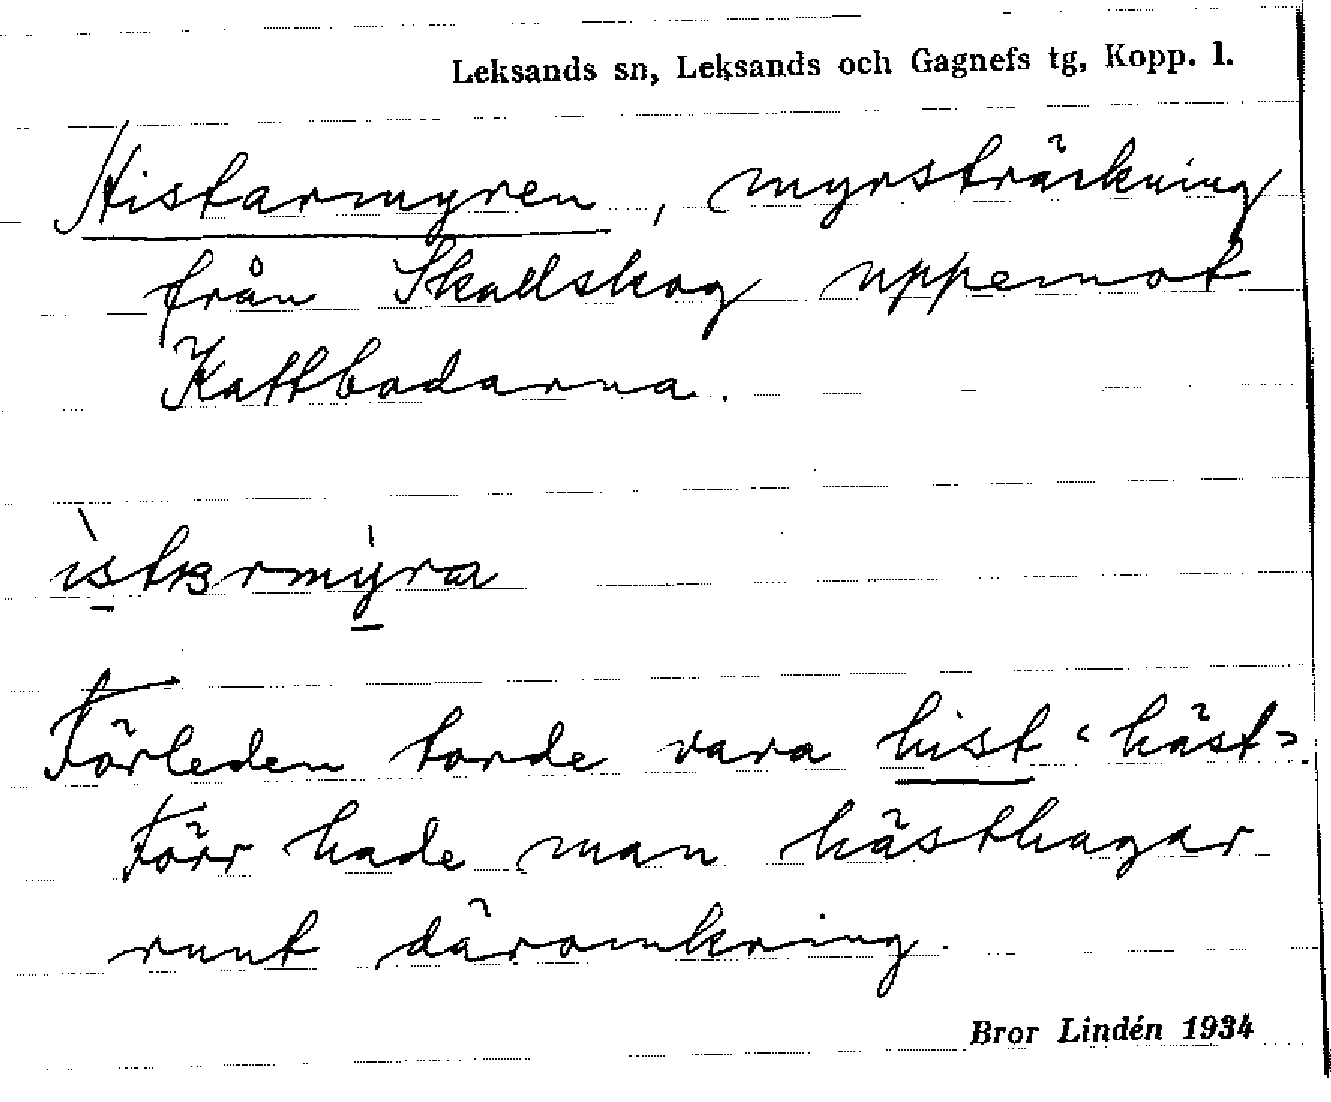 Leksands sn, Leksands och Gagnefs tg, Kopp. l.
Histarmyren, myrsträckning
från Skallskog uppemot
Kattbodarna.
Förleden torde vara hist "häst".
Förr hade man hästhagar
runt däromkring.
Bror Lindén 1934